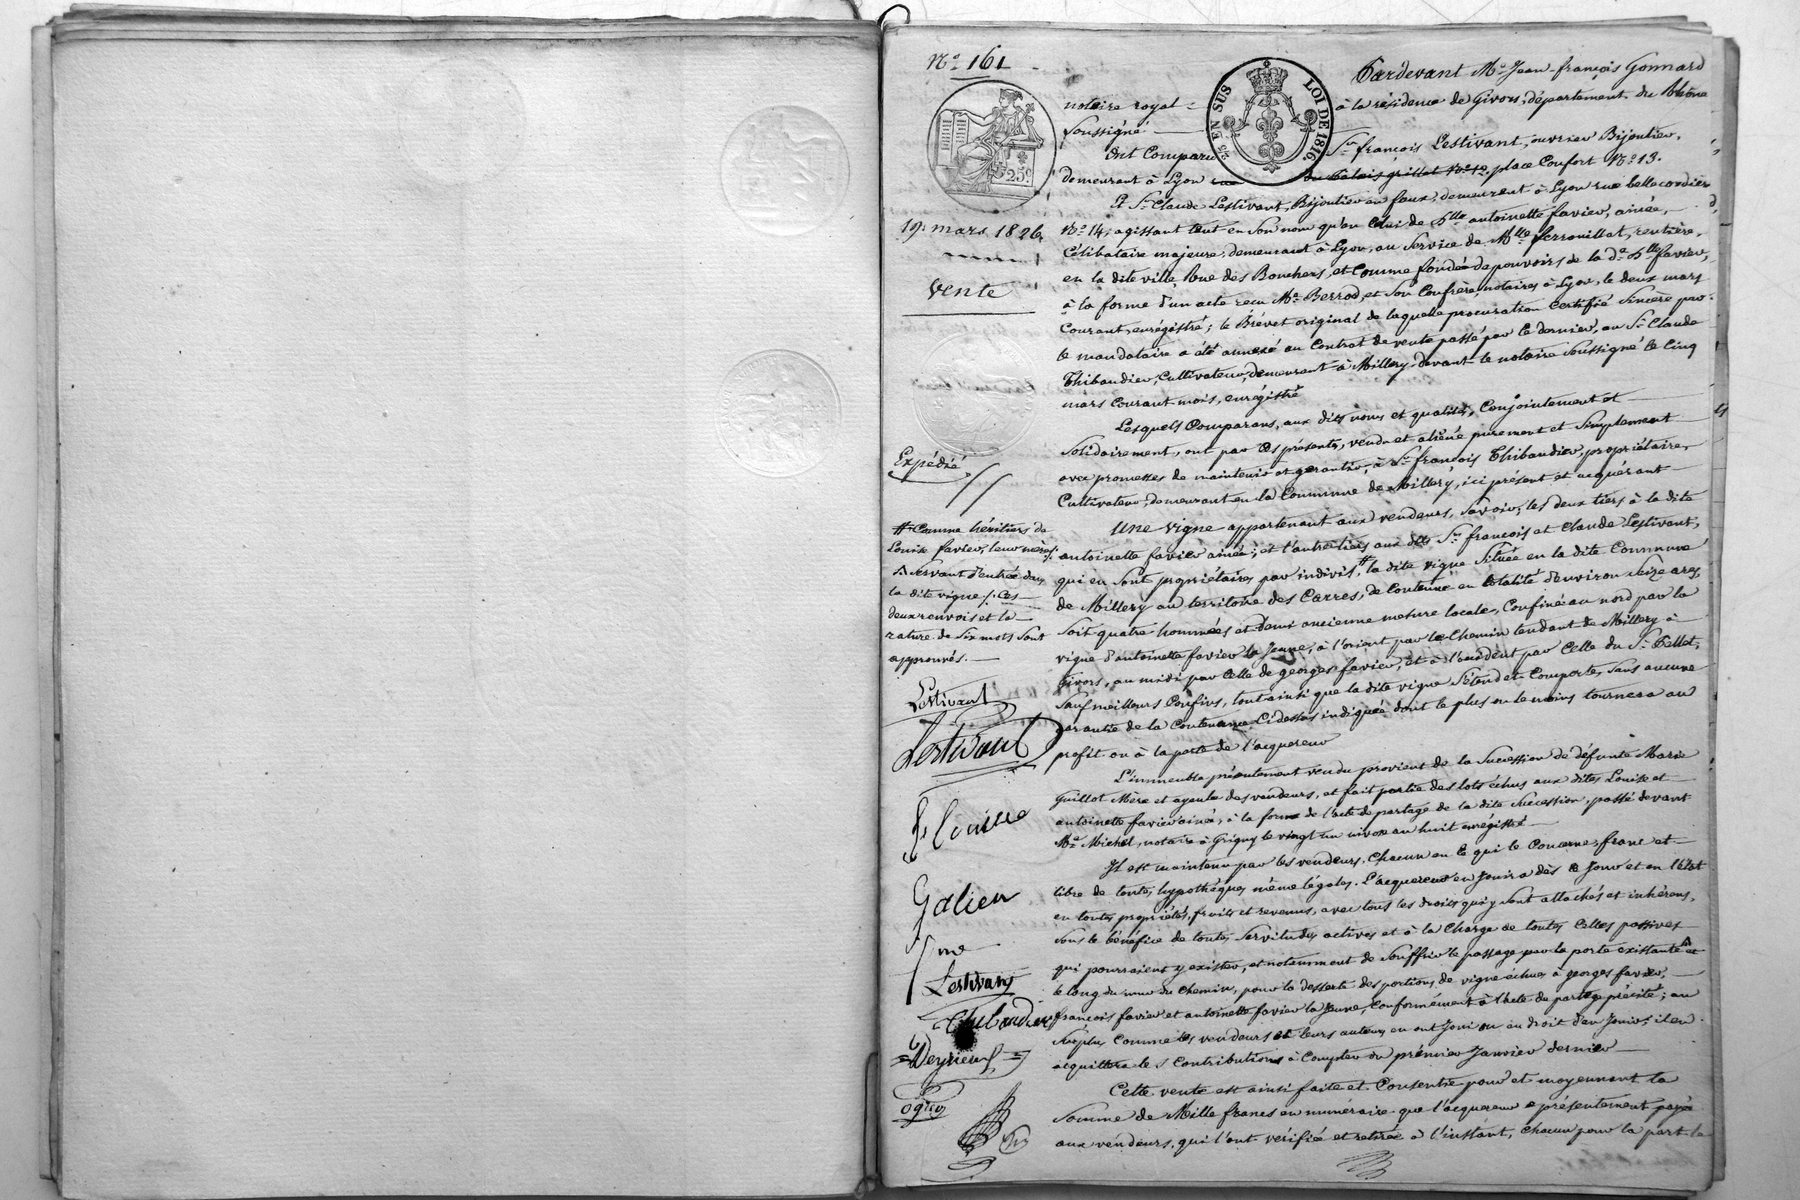 N.o 161
Pardevant M.e Jean-françois Gonnard
notaire royal à la résidence de Givors, département du Rhône
soussigné
EN SUS LOI DE 1816.
25c
Ont Comparu S.r françois Lestivant, ouvrier Bijoutier,
demeurant à Lyon rue du Palais grillet N.o place Confort N.o 13.
Et S.r Claude Lestivant, Bijoutier en faux, demeurant à Lyon rue belle cordière
19 mars 1826
N.o 14, agissant tant en son nom qu'en celui de D.lle antoinette favier, ainée,
Célibataire majeure, demeurant à Lyon, au service de M.lle Perrouillat, rentière,
en la dite ville, Rue des Bouchers, et comme fondé de pouvoirs de la d.e D.lle favier,
vente
à la forme d'un acte reçu M.e Berrod, et son confrère, notaires à Lyon, le deux mars
courant, enrégistré; le Brévet original de laquelle procuration certifié sincère par
le mandataire a été annexé au contrat de vente passé par ce dernier, au S.r Claude
Thibaudier, cultivateur, demeurant à Millery, devant le notaire soussigné le cinq
mars courant mois, enrégistré
Lesquels comparans, aux dits noms et qualités, conjointement et
Expédié
solidairement, ont par ces présentes, vendu et aliéné purement et simplement
avec promesses de maintenir et garantir, à S.r françois Thibaudier, propriétaire,
cultivateur, demeurant en la commune de Millery, ici présent et acquérant
Une vigne appartenant aux vendeurs, savoir, les deux tiers à la dite
antoinette favier ainée; et l'autre tiers aux dits S.rs françois et Claude Lestivant,
qui en sont propriétaires par indivis, # la dite vigne située en la dite commune
de Millery au territoire des Carres, de contenue en totalité d'environ seize ares,
soit quatre hommées et demi ancienne mesure locale, confinée au nord par la
vigne d'antoinette favier la jeune, à l'orient par le chemin tendant de Millery à
Givors, au midi par celle de georges favier, et à l'occident par celle du S.r Pellet,
sauf meilleurs confins, tout ainsi que la dite vigne s'étend et comporte, sans aucune
garantie de la contenance ci-dessus indiquée dont le plus ou le moins tournera au
profit ou à la perte de l'acquereur
# Comme héritiers de
Louise favier, leur mère /.
servant d'entrée dans
la dite vigne /. Ces
deux renvois et la
rature de six mots sont
approuvés.
Lestivant
Lestivant
L'immeuble présentement vendu provient de la succession de défunte Marie
Guillot Mère et ayeule des vendeurs, et fait partie des lots échus aux dites Louise et
antoinette favier ainée, à la forme de l'acte de partage de la dite succession, passé devant
M.e Michel, notaire à Grigny le vingt un nivose an huit enrégistré
Il est maintenu par les vendeurs, chacun en ce qui le concerne, franc et
libre de toutes hypothèques même légales. L'acquereur en jouira dès ce jour et en l'état
en toutes propriétés, fruits et revenus, avec tous les droits qui y sont attachés et inhérens,
sous le bénéfice de toutes servitudes actives et à la charge de toutes celles passives
qui pourraient y exister, et notamment de souffrir le passage par la porte existante et
le long du mur du chemin, pour la desserte des portions de vigne échues à georges favier,
françois favier et antoinette favier la jeune, conformément à l'acte de partage précité; au
surplus comme les vendeurs et leurs auteurs en ont joui ou eu droit d'en jouir; il en
acquittera les contributions à compter du prémier Janvier dernier
Galien
Lestivant
Thibaudier
Deyrieux
ogier
Cette vente est ainsi faite et consentie pour et moyennant la
somme de Mille francs en numéraire que l'acquereur a présentement payée
aux vendeurs, qui l'ont vérifiée et retirée à l'instant, chacun pour la part le